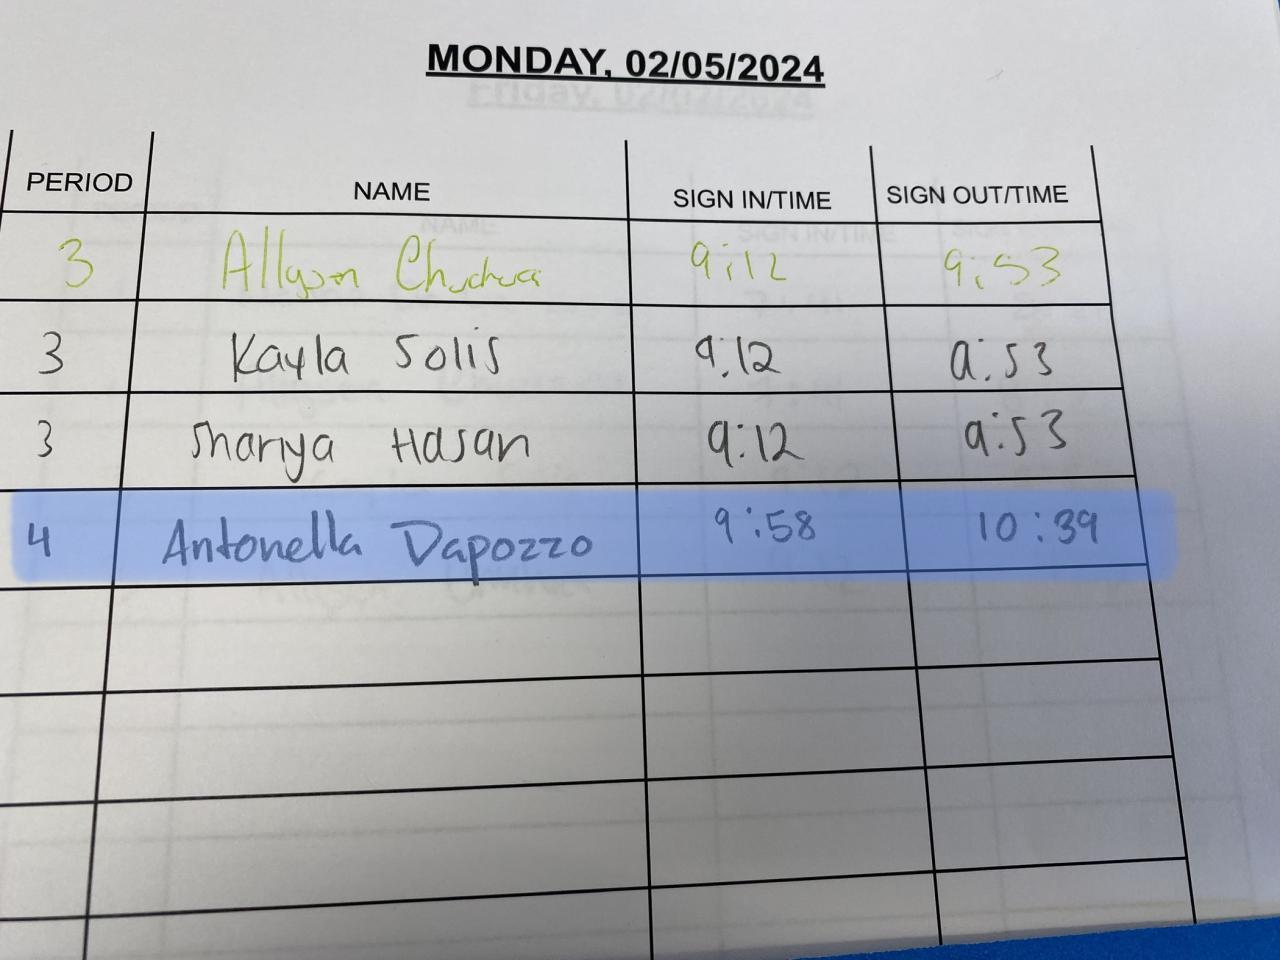 MONDAY, 02/05/2024
PERIOD NAME SIGN IN/TIME SIGN OUT/TIME
3 Allyson 9:12 9:53
3 Kayla Solis 9:12 9:53
3 Shariya Hasan 9:12 9:53
4 Antonella Dapozzo 9:58 10:39